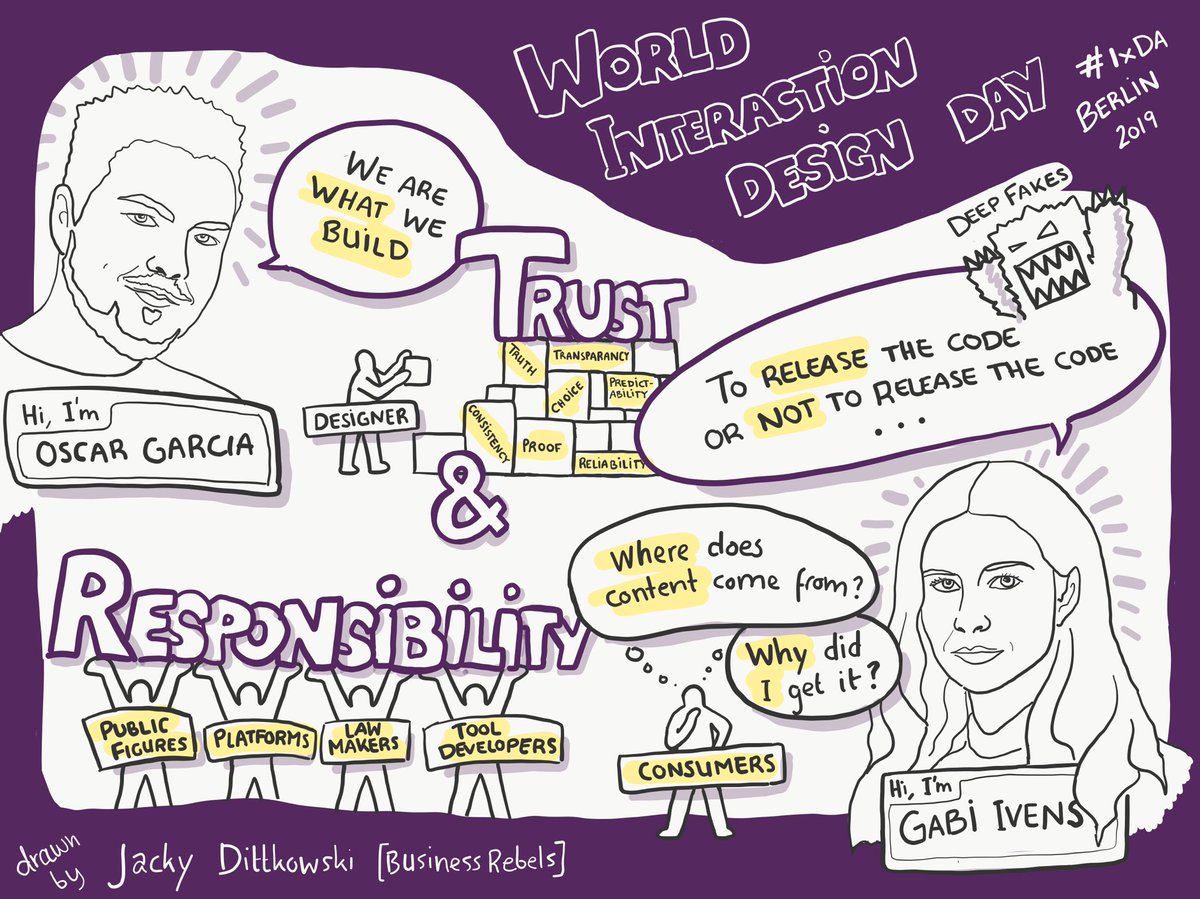 WORLD
INTERACTION
DESIGN DAY
#IxDA
BERLIN
2019
WE ARE
WHAT WE
BUILD
Hi, I'm
OSCAR GARCIA
DEEP FAKES
TO RELEASE THE CODE
OR NOT TO RELEASE THE CODE
...
TRUST
TRUTH
TRANSPARANCY
CHOICE
PREDICT-
ABILITY
CONSISTENCY
PROOF
RELIABILITY
DESIGNER
&
RESPONSIBILITY
PUBLIC
FIGURES
PLATFORMS
LAW
MAKERS
TOOL
DEVELOPERS
Where does
content come from?
Why did
I get it?
CONSUMERS
Hi, I'm
GABI IVENS
drawn
by Jacky Dittkowski [Business Rebels]